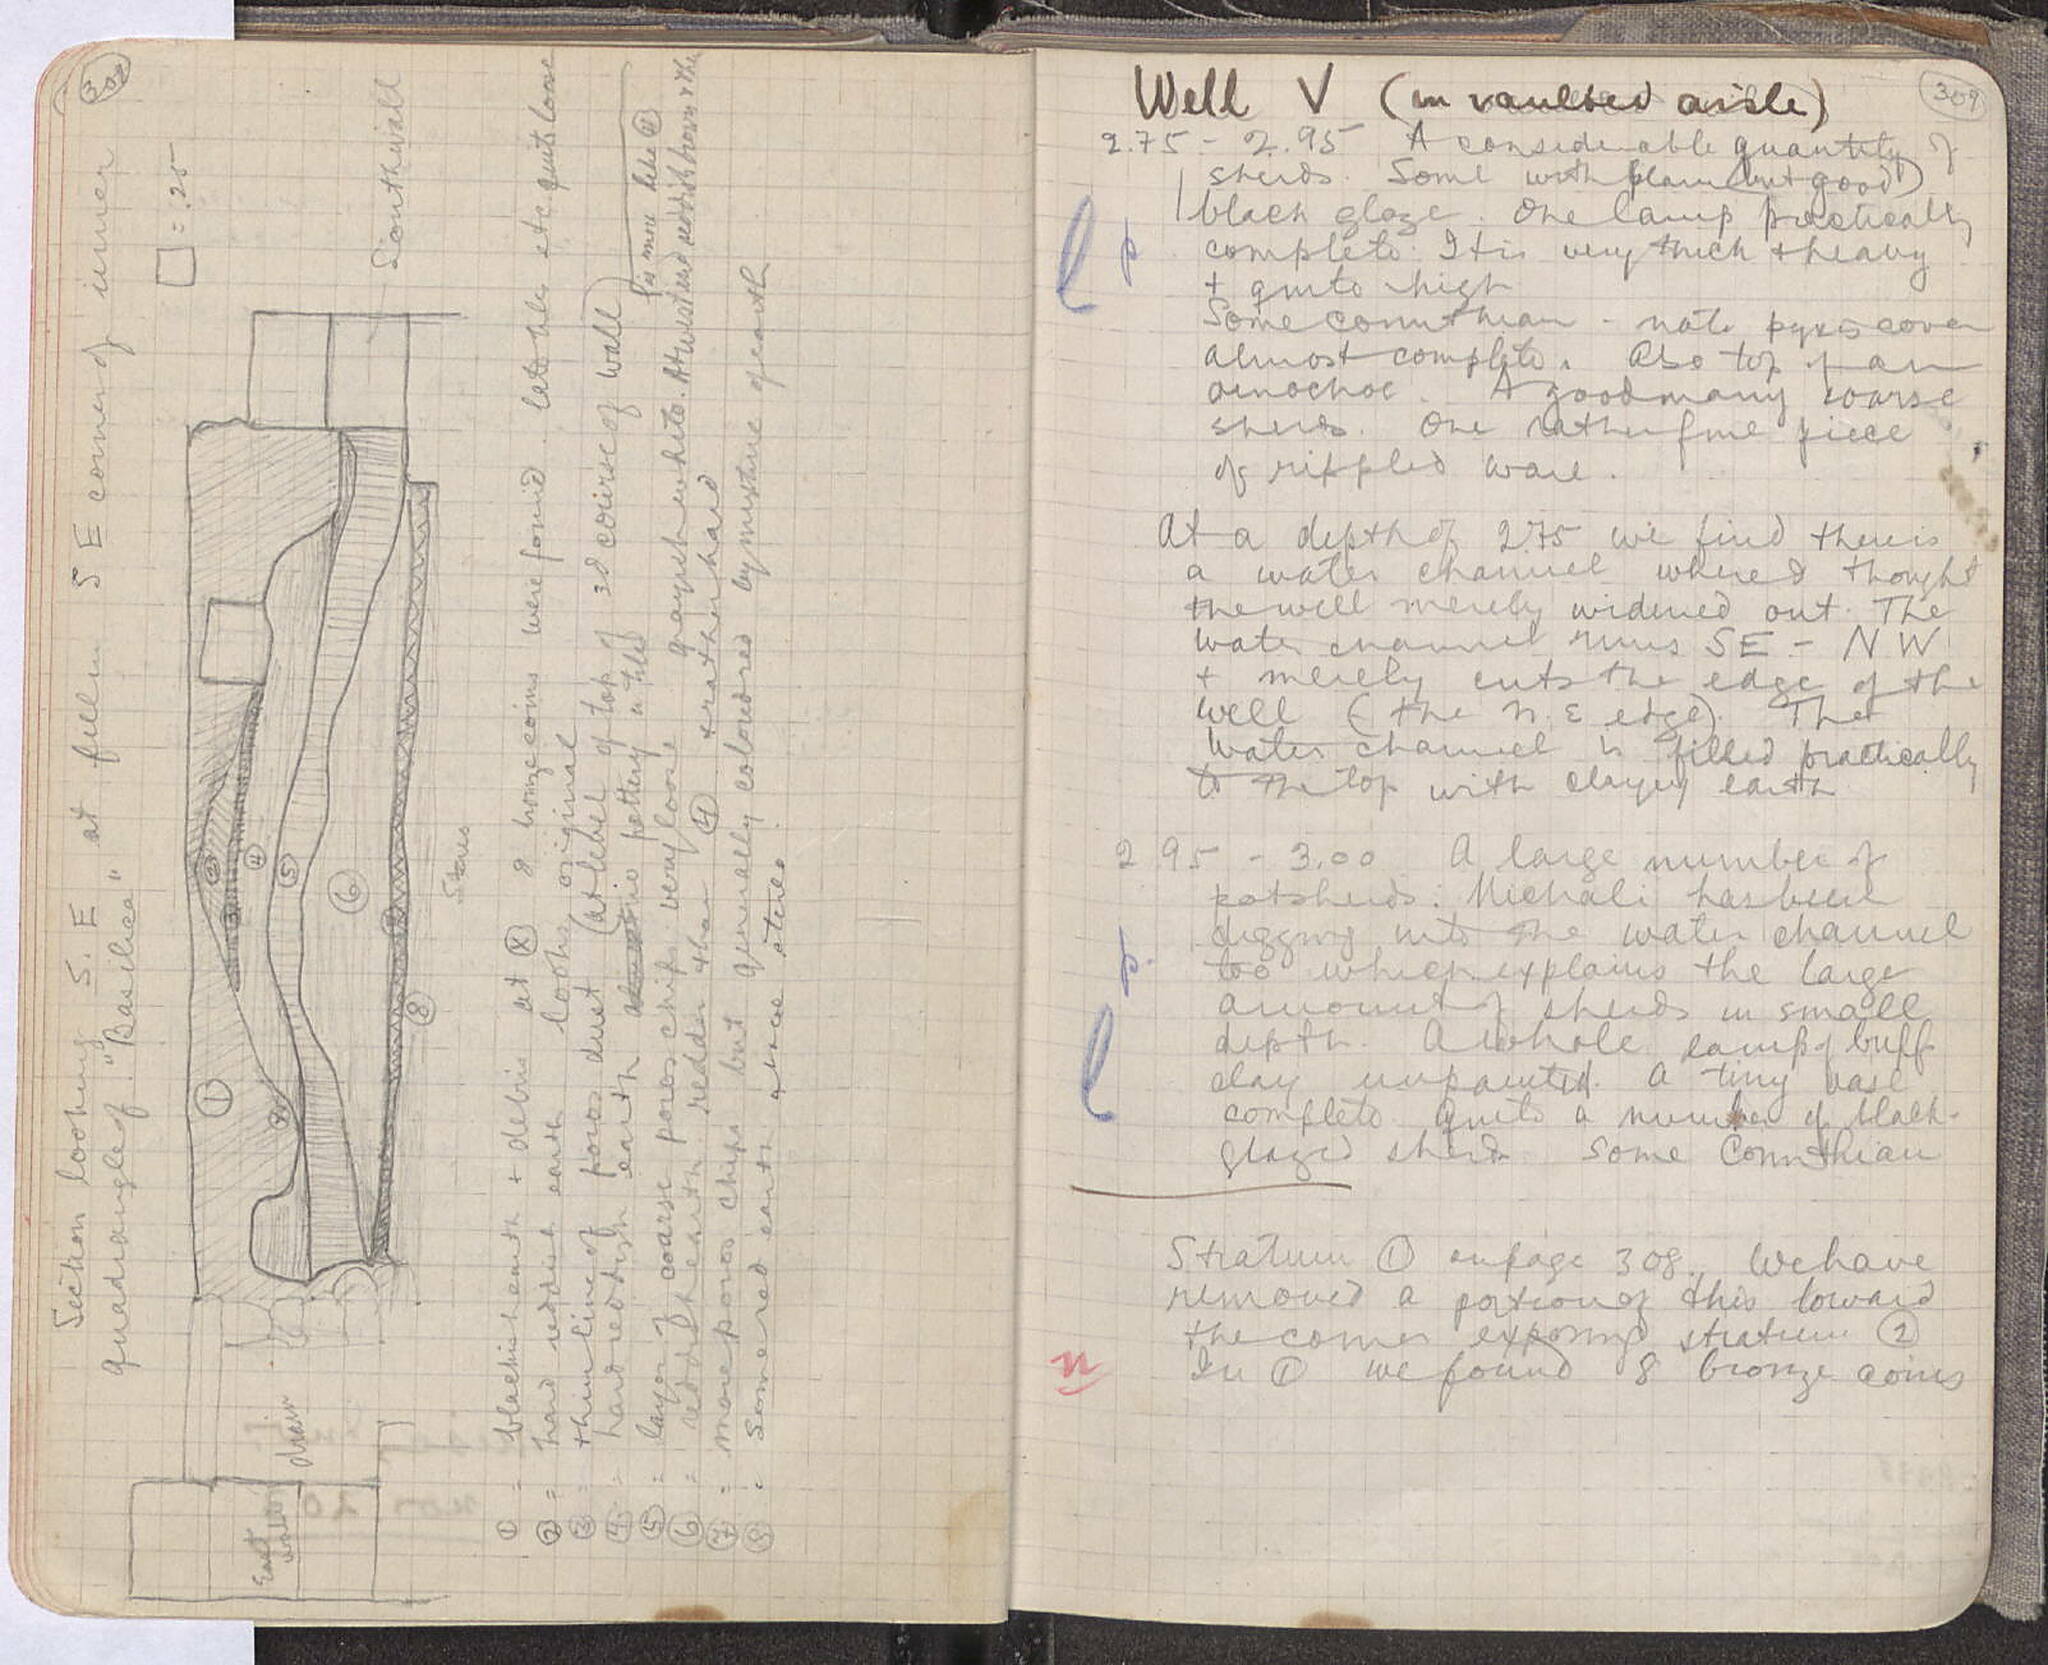 308
Section looking S. E at fill in S E corner of inner
quadrangle of "Basilica"
□ = .25
South wall
East wall
drain
Stereo
①
②
③
④
⑤
⑥
⑧
Ⓧ
① = blackish earth + debris at Ⓧ 8 bronze coins were found. late tiles etc. quite loose
② = hard reddish earth looks original
③ = thin line of poros dust (at level of top of 3d course of wall)
④ = hard reddish earth no pottery or tiles
⑤ = layer of coarse poros chips very loose grayish white. At west end reddish brown + then is more like ④
⑥ = reddish earth redder than ④ + rather hard
⑦ = more poros chips but generally colored red by mixture of earth
⑧ = some red earth stereo
309
Well V (in vaulted aisle)
2.75 - 2.95 A considerable quantity of
sherds. Some with plain (but good)
black glaze. One lamp practically
complete. It is very thick + heavy
+ quite high
Some Corinthian - note pyxis cover
almost complete. Also top of an
oinochoe. A good many coarse
sherds. One rather fine piece
of rippled ware.
At a depth of 2.75 we find there is
a water channel where I thought
the well merely widened out. The
water channel runs SE - NW
+ merely cuts the edge of the
well (the N.E edge). The
water channel is filled practically
to the top with clayey earth
2 95 - 3.00 A large number of
potsherds. Michali has been
digging into the water channel
too which explains the large
amount of sherds in small
depth. A whole lamp of buff
clay unpainted. A tiny vase
complete. Quite a number of black-
glazed sherds Some Corinthian
Stratum ① on page 308. We have
removed a portion of this toward
the corner exposing stratum ②
n In ① we found 8 bronze coins